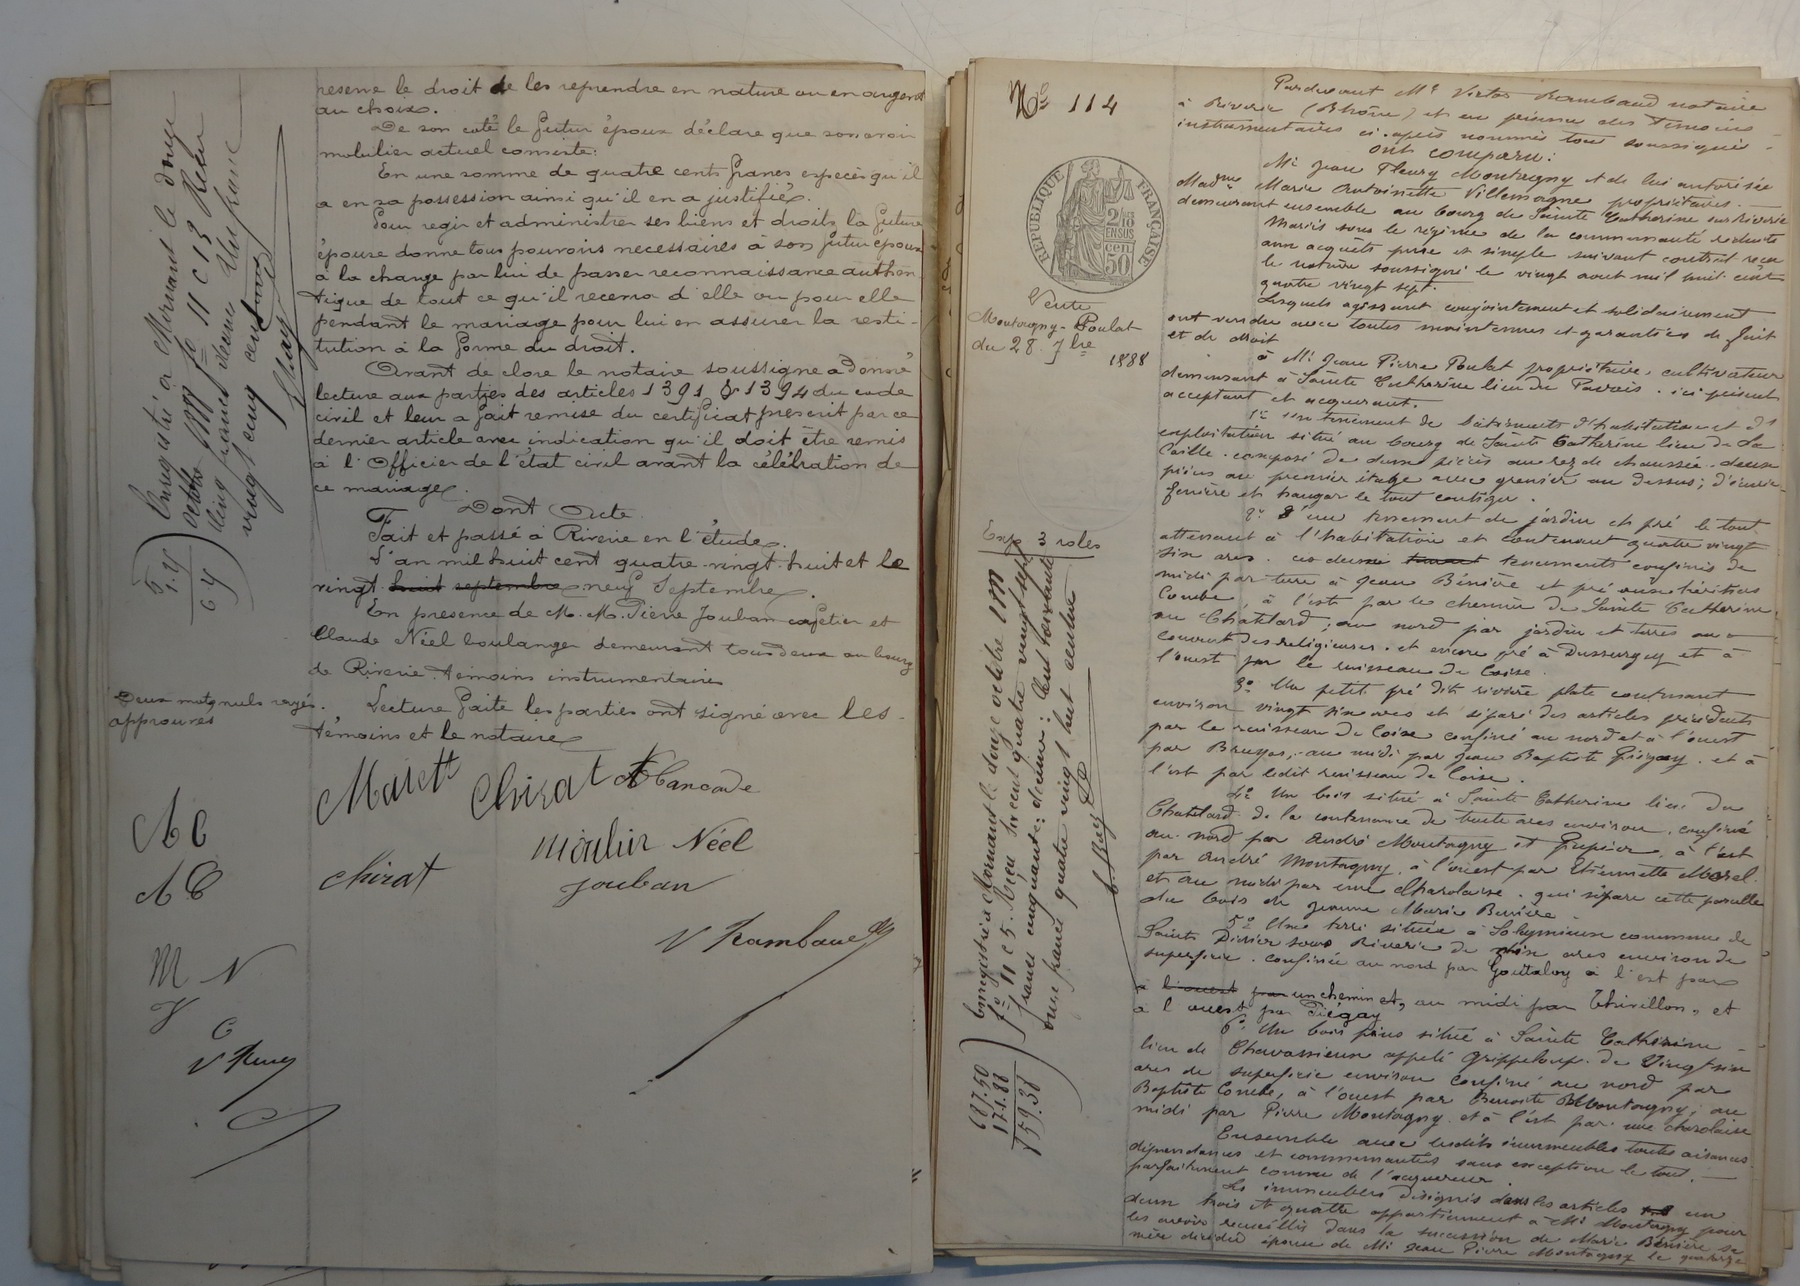 reserve le droit de les reprendre en nature ou en argent
au choix.
De son coté le futur époux déclare que son avoir
mobilier actuel consiste:
En une somme de quatre cents francs espèces qu'il
a en sa possession ainsi qu'il en a justifié.
Pour regir et administrer ses biens et droits la future
épouse donne tous pouvoirs necessaires à son futur époux
à la charge par lui de passer reconnaissance authen
tique de tout ce qu'il recevra d'elle ou pour elle
pendant le mariage pour lui en assurer la resti-
tution à la forme du droit.
Avant de clore le notaire soussigné a donné
lecture aux parties des articles 1391 & 1394 du code
civil et leur a fait remise du certificat prescrit par ce
dernier article avec indication qu'il doit être remis
à l'Officier de l'état civil avant la célébration de
ce mariage.
Dont Acte
Fait et passé à Riverie en l'étude.
L'an mil huit cent quatre-vingt-huit et le
vingt huit septembre neuf Septembre.
En presence de M.M. Pierre Jouban cafetier et
Claude Néel boulanger demeurant tous deux au bourg
de Riverie témoins instrumentaires
Lecture faite les parties ont signé avec les
témoins et le notaire
Deux mots nuls rayés
approuvés
Enregistré à Mornant le douze
octobre 1888 fo 11 c 13 Reçu
cinq francs décime un franc
vingt cinq centimes
May
5
1.25
AC
AC
M N
V C
Chirat
Moulin Néel
Chirat
Jouban
V Rambaud
No 114
RÉPUBLIQUE FRANÇAISE
2/10 EN SUS
50 cen
Vente
Montagny-Poulat
du 28 7bre
1888
Exp 3 roles
Enregistré à Mornant le douze octobre 1888
fo 11 c 5. Reçu six cent quatre vingt sept
francs cinquante; décime: cent soixante
onze francs quatre vingt huit centimes
May
687.50
171.88
859.38
Pardevant Me Victor Rambaud notaire
à Riverie (Rhône) et en présence des témoins
instrumentaires ci-après nommés tous soussignés
Ont comparu:
Mr Jean Fleury Montagny et de lui autorisée
Madme Marie Antoinette Villemagne propriétaires
demeurant ensemble au bourg de Sainte Catherine sur Riverie
Mariés sous le régime de la communauté réduite
aux acquêts pure et simple suivant contrat reçu
le notaire soussigné le vingt aout mil huit cent
quatre vingt sept.
Lesquels agissant conjointement et solidairement
ont vendu avec toutes maintenues et garanties de fait
et de droit
à Mr Jean Pierre Poulat propriétaire cultivateur
demeurant à Sainte Catherine lieu du ici présent
acceptant et acquérant.
1o un tenement de bâtiments d'habitation et d'
exploitation situé au bourg de Sainte Catherine lieu de la
composé de deux pièces au rez de chaussée, deux
pièces au premier étage avec grenier au dessus; d'écurie
fenière et hangar le tout contigu.
2o D'un tenement de jardin et pré le tout
attenant à l'habitation et contenant quatre vingt
six ares. ces deux tenements confinés de
midi par terre à Jean Bénière et pré aux héritiers
Combe, à l'est par le chemin de Sainte Catherine
au Châtelard; au nord par jardin et terres au
couvent des religieuses, et encore pré à Dussurgey et à
l'ouest par le ruisseau de Coise.
3o Un petit pré dit rivière plate contenant
environ vingt six ares et séparé des articles précédents
par le ruisseau de Coise confiné au nord et à l'ouest
par Bruyas, au midi par Jean Baptiste Piégay et à
l'est par ledit ruisseau de Coise.
4o Un bois situé à Sainte Catherine lieu du
Chatelard de la contenance de trente ares environ, confiné
au nord par André Montagny et Grupier, à l'est
par André Montagny, à l'ouest par Etiennette Morel
et au midi par une charolaise qui sépare cette parcelle
du bois de Jeanne Marie Bénière
5o Une terre située à commune de
Saint Didier sous Riverie de ares environ de
superficie, confinée au nord par Goutaloy à l'est par
à l'ouest par un chemin et, au midi par Thivillon, et
à l'ouest par Piégay
6o Un bois pins situé à Sainte Catherine
lieu de Chavassieux appelé Grippeloup de vingt six
ares de superficie environ confiné au nord par
Baptiste Combe, à l'ouest par Benoite Montagny; au
midi par Pierre Montagny et à l'est par une charolaise
Ensemble avec lesdits immeubles toutes aisances
dépendances et communautés sans exception le tout
parfaitement connu de l'acquéreur.
Les immeubles désignés dans les articles un
deux trois et quatre appartiennent à Mr Montagny pour
les avoir recueillis dans la succession de Marie Bénière sa
mère décédée épouse de Mr Jean Pierre Montagny le quatorze